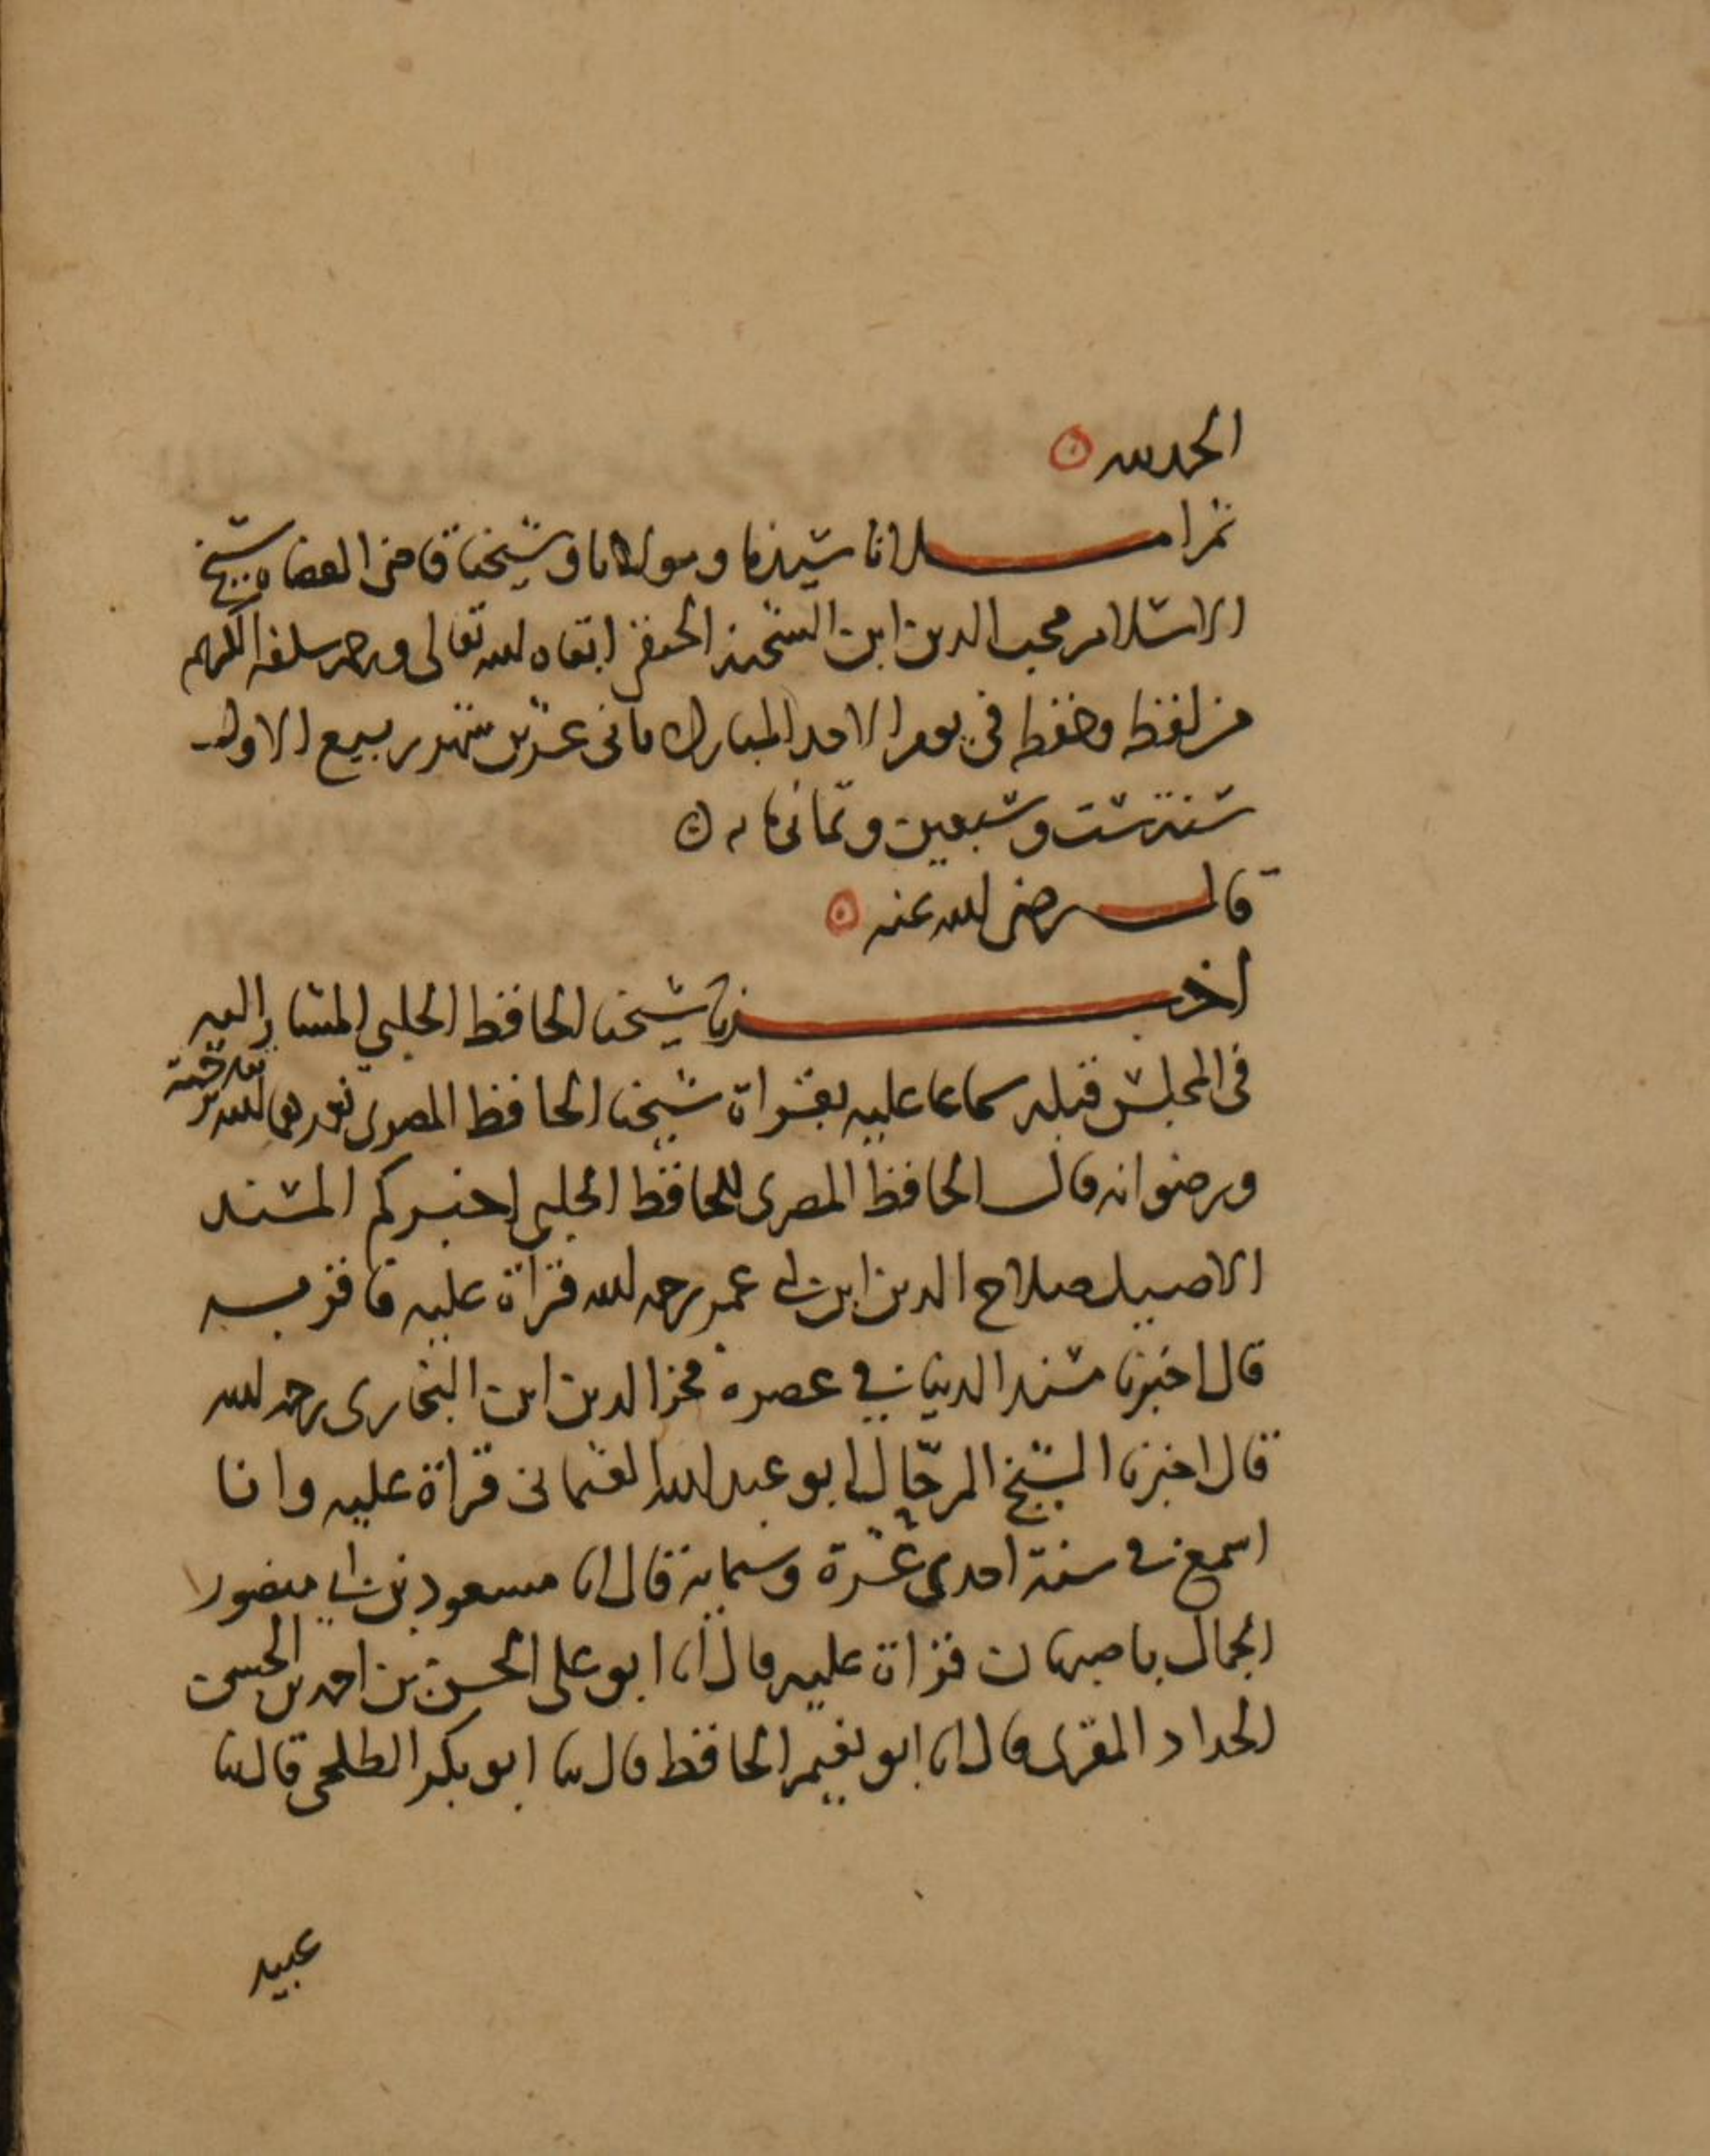 الحمد لله
ثم املانا سيدنا ومولانا وشيخنا قاضى القضاه شيخ
الاسلام محب الدين ابن الشحنه الحنفى ابقاه الله تعالى ورحم سلفه الكريم
من لفظه وحفظه فى يوم الاحد المبارك ثانى عشرين شهر ربيع الاول
سنة ست وسبعين وثمانمايه
قال رضى الله عنه
اخبرنا شيخنا الحافظ الحلبي المشار اليه
فى المجلس قبله سماعا عليه بقراة شيخنا الحافظ المصرى تغمدهما الله برحمته
ورضوانه قال الحافظ المصرى للحافظ الحلبي اخبركم المسند
الاصيل صلاح الدين ابن ابي عمر رحمه الله قراة عليه فاقر به
قال اخبرنا مسند الدنيا في عصره فخر الدين ابن البخارى رحمه الله
قال اخبرنا الشيخ الرحّال ابو عبد الله قراة عليه وانا
اسمع في سنة احدى عشرة وستماية قال انا مسعود بن ابي منصور
الجمال باصبهان قراة عليه قال انا ابو على الحسن بن احمد بن الحسن
الحداد المقرى قال انا ابو نعيم الحافظ قال ثنا ابو بكر الطلحى قال ثنا
عبيد